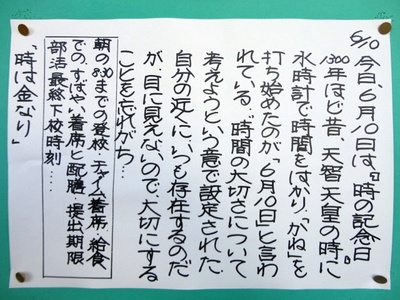 6/10
今日、6月10日は、「時の記念日」
1300年ほど昔、天智天皇の時に
水時計で時間をはかり、「かね」を
打ち始めたのが「6月10日」と言わ
れている。時間の大切さについて
考えようという意で設定された。
自分の近くに、いつも存在するのだ
が、目に見えないので、大切にする
ことを忘れがち…
朝の8:30までの登校・チャイム着席・給食
での、すばやい着席と配膳・提出期限
部活最終下校時刻……
「時は金なり」